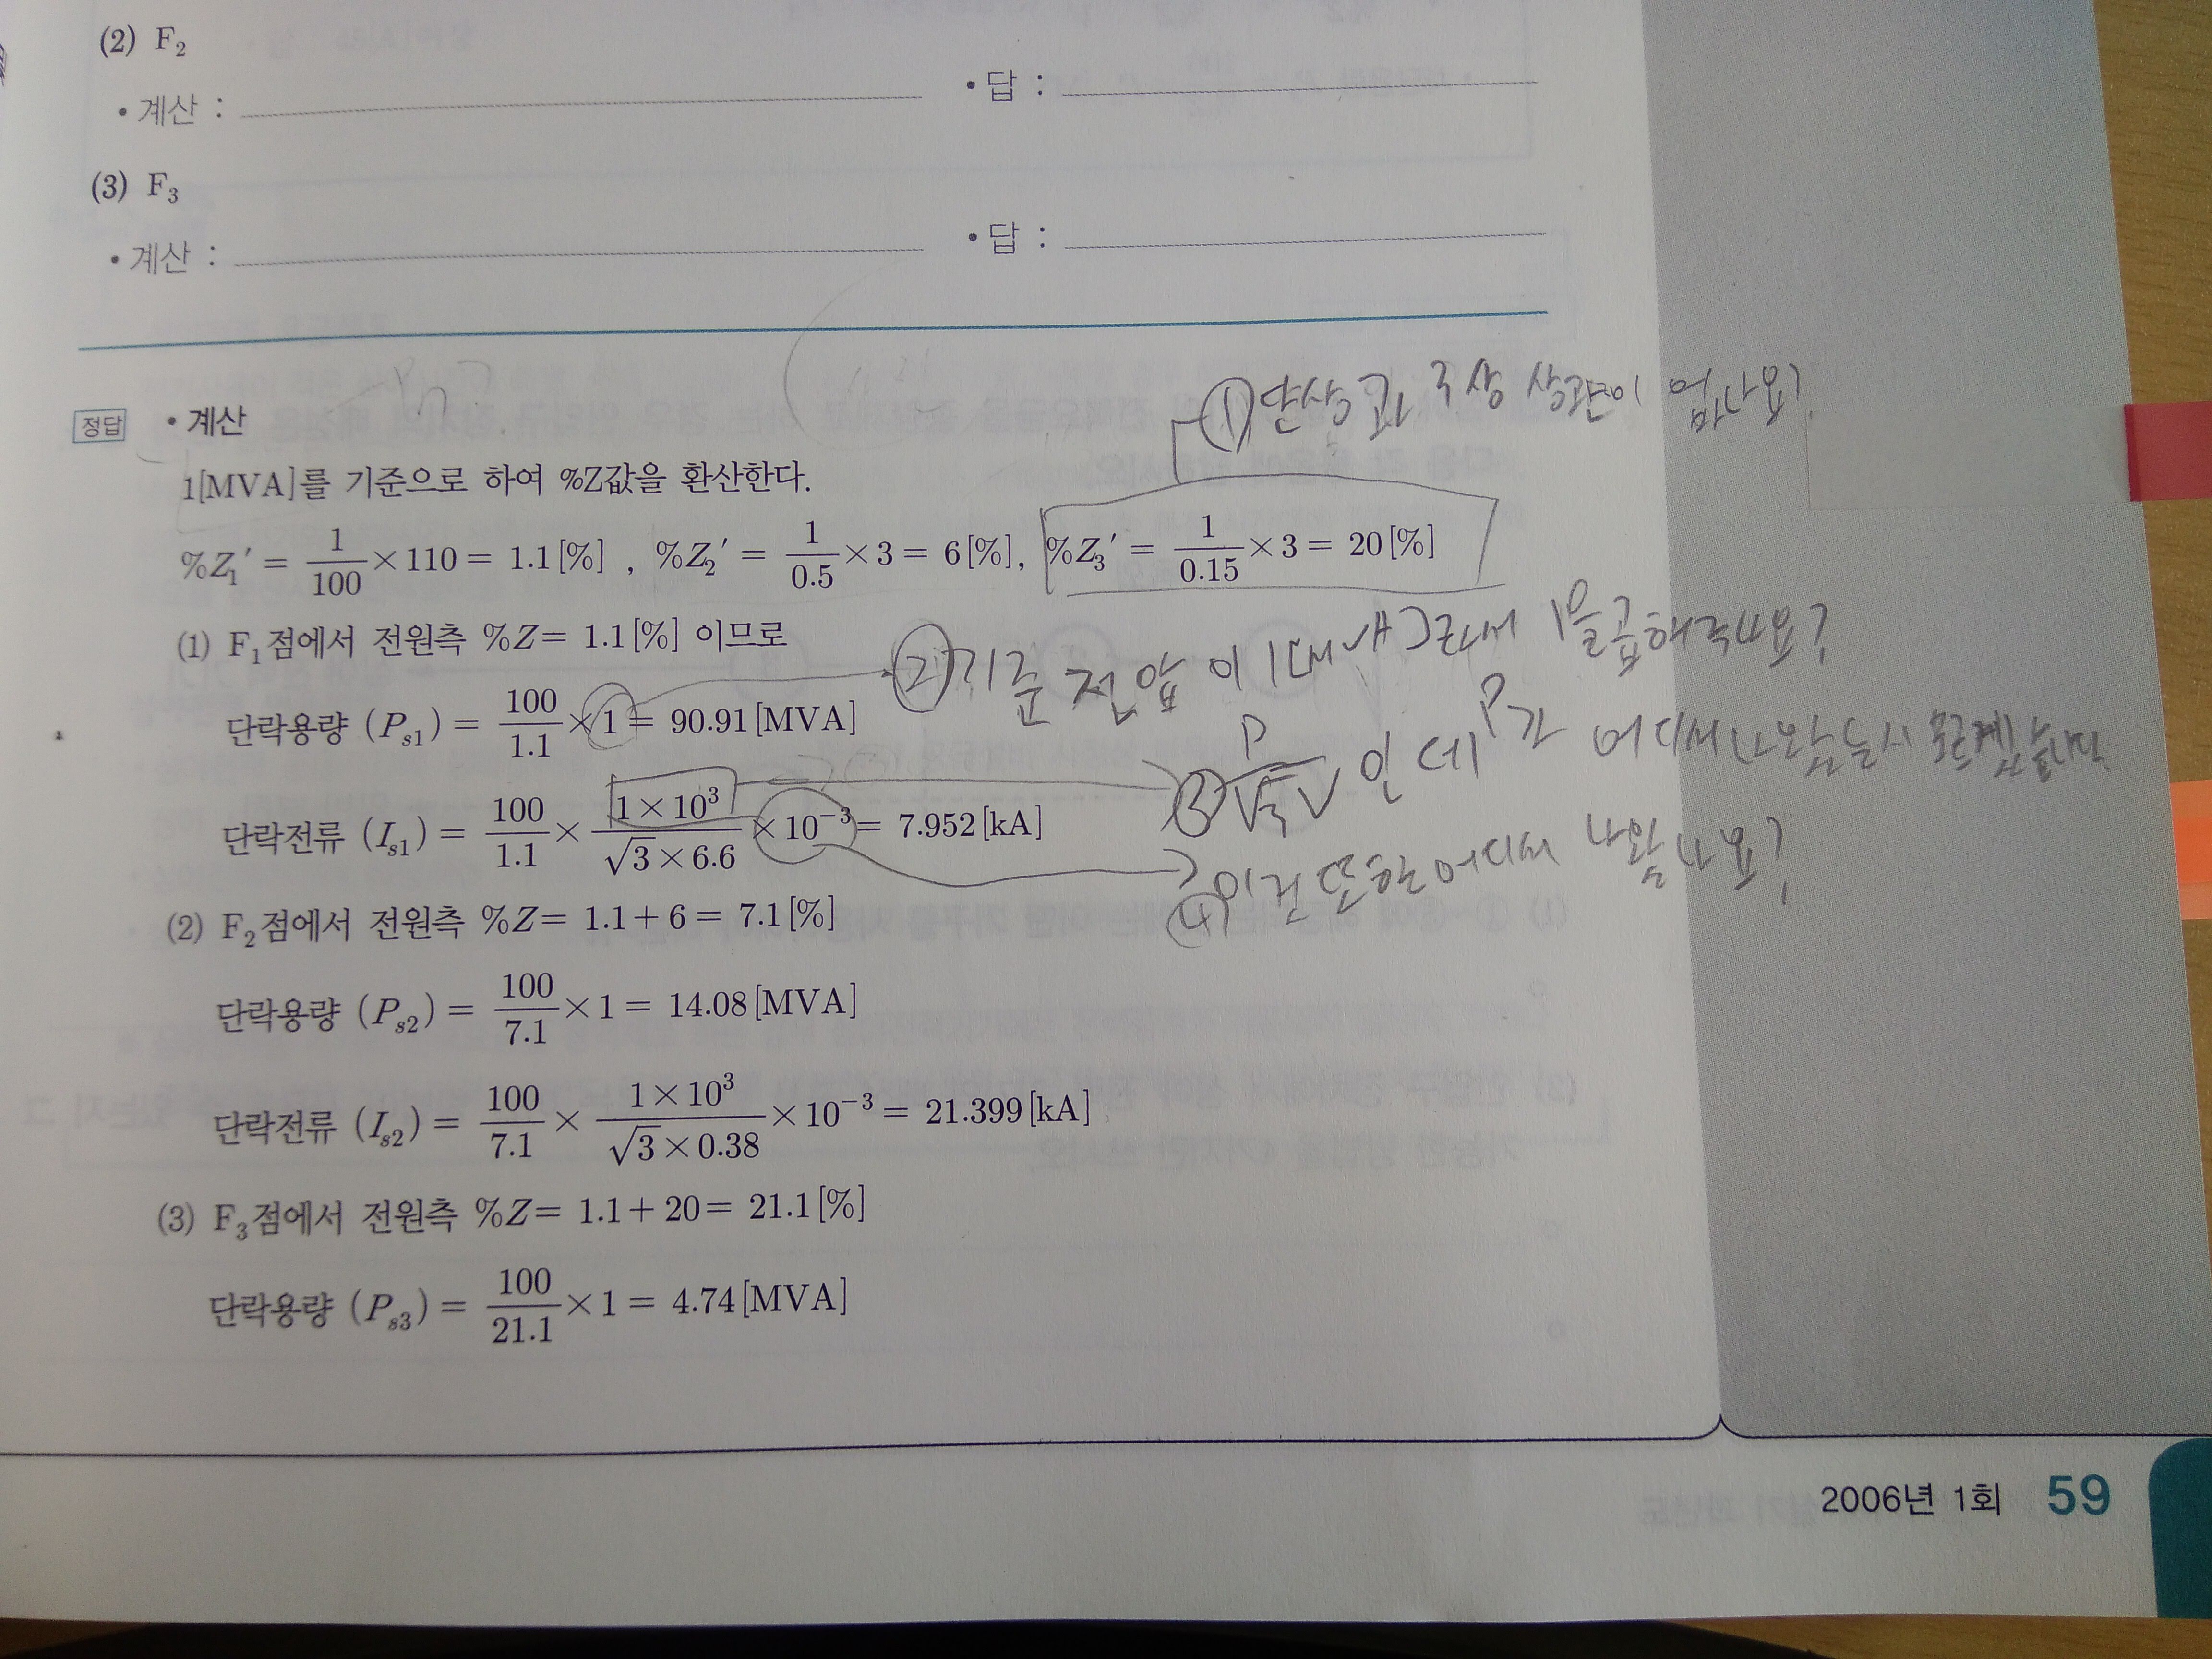 (2) F₂
• 계산 :
• 답 :
(3) F₃
• 계산 :
• 답 :
정답 • 계산
① 단상과 3상 상관이 없나요?
1[MVA]를 기준으로 하여 %Z값을 환산한다.
%Z₁′ = 1/100 × 110 = 1.1[%] , %Z₂′ = 1/0.5 × 3 = 6[%], %Z₃′ = 1/0.15 × 3 = 20[%]
(1) F₁점에서 전원측 %Z = 1.1[%] 이므로
② 기준 전압이 1 그래서 1을 곱해주나요?
단락용량 (Pₛ₁) = 100/1.1 × 1 = 90.91[MVA]
③ P/√3V 인데 P가 어디서 나왔는지 모르겠습니다
단락전류 (Iₛ₁) = 100/1.1 × (1×10³)/(√3×6.6) × 10⁻³ = 7.952[kA]
④ 이건 또한 어디서 나왔나요?
(2) F₂점에서 전원측 %Z = 1.1 + 6 = 7.1[%]
단락용량 (Pₛ₂) = 100/7.1 × 1 = 14.08[MVA]
단락전류 (Iₛ₂) = 100/7.1 × (1×10³)/(√3×0.38) × 10⁻³ = 21.399[kA]
(3) F₃점에서 전원측 %Z = 1.1 + 20 = 21.1[%]
단락용량 (Pₛ₃) = 100/21.1 × 1 = 4.74[MVA]
2006년 1회 59